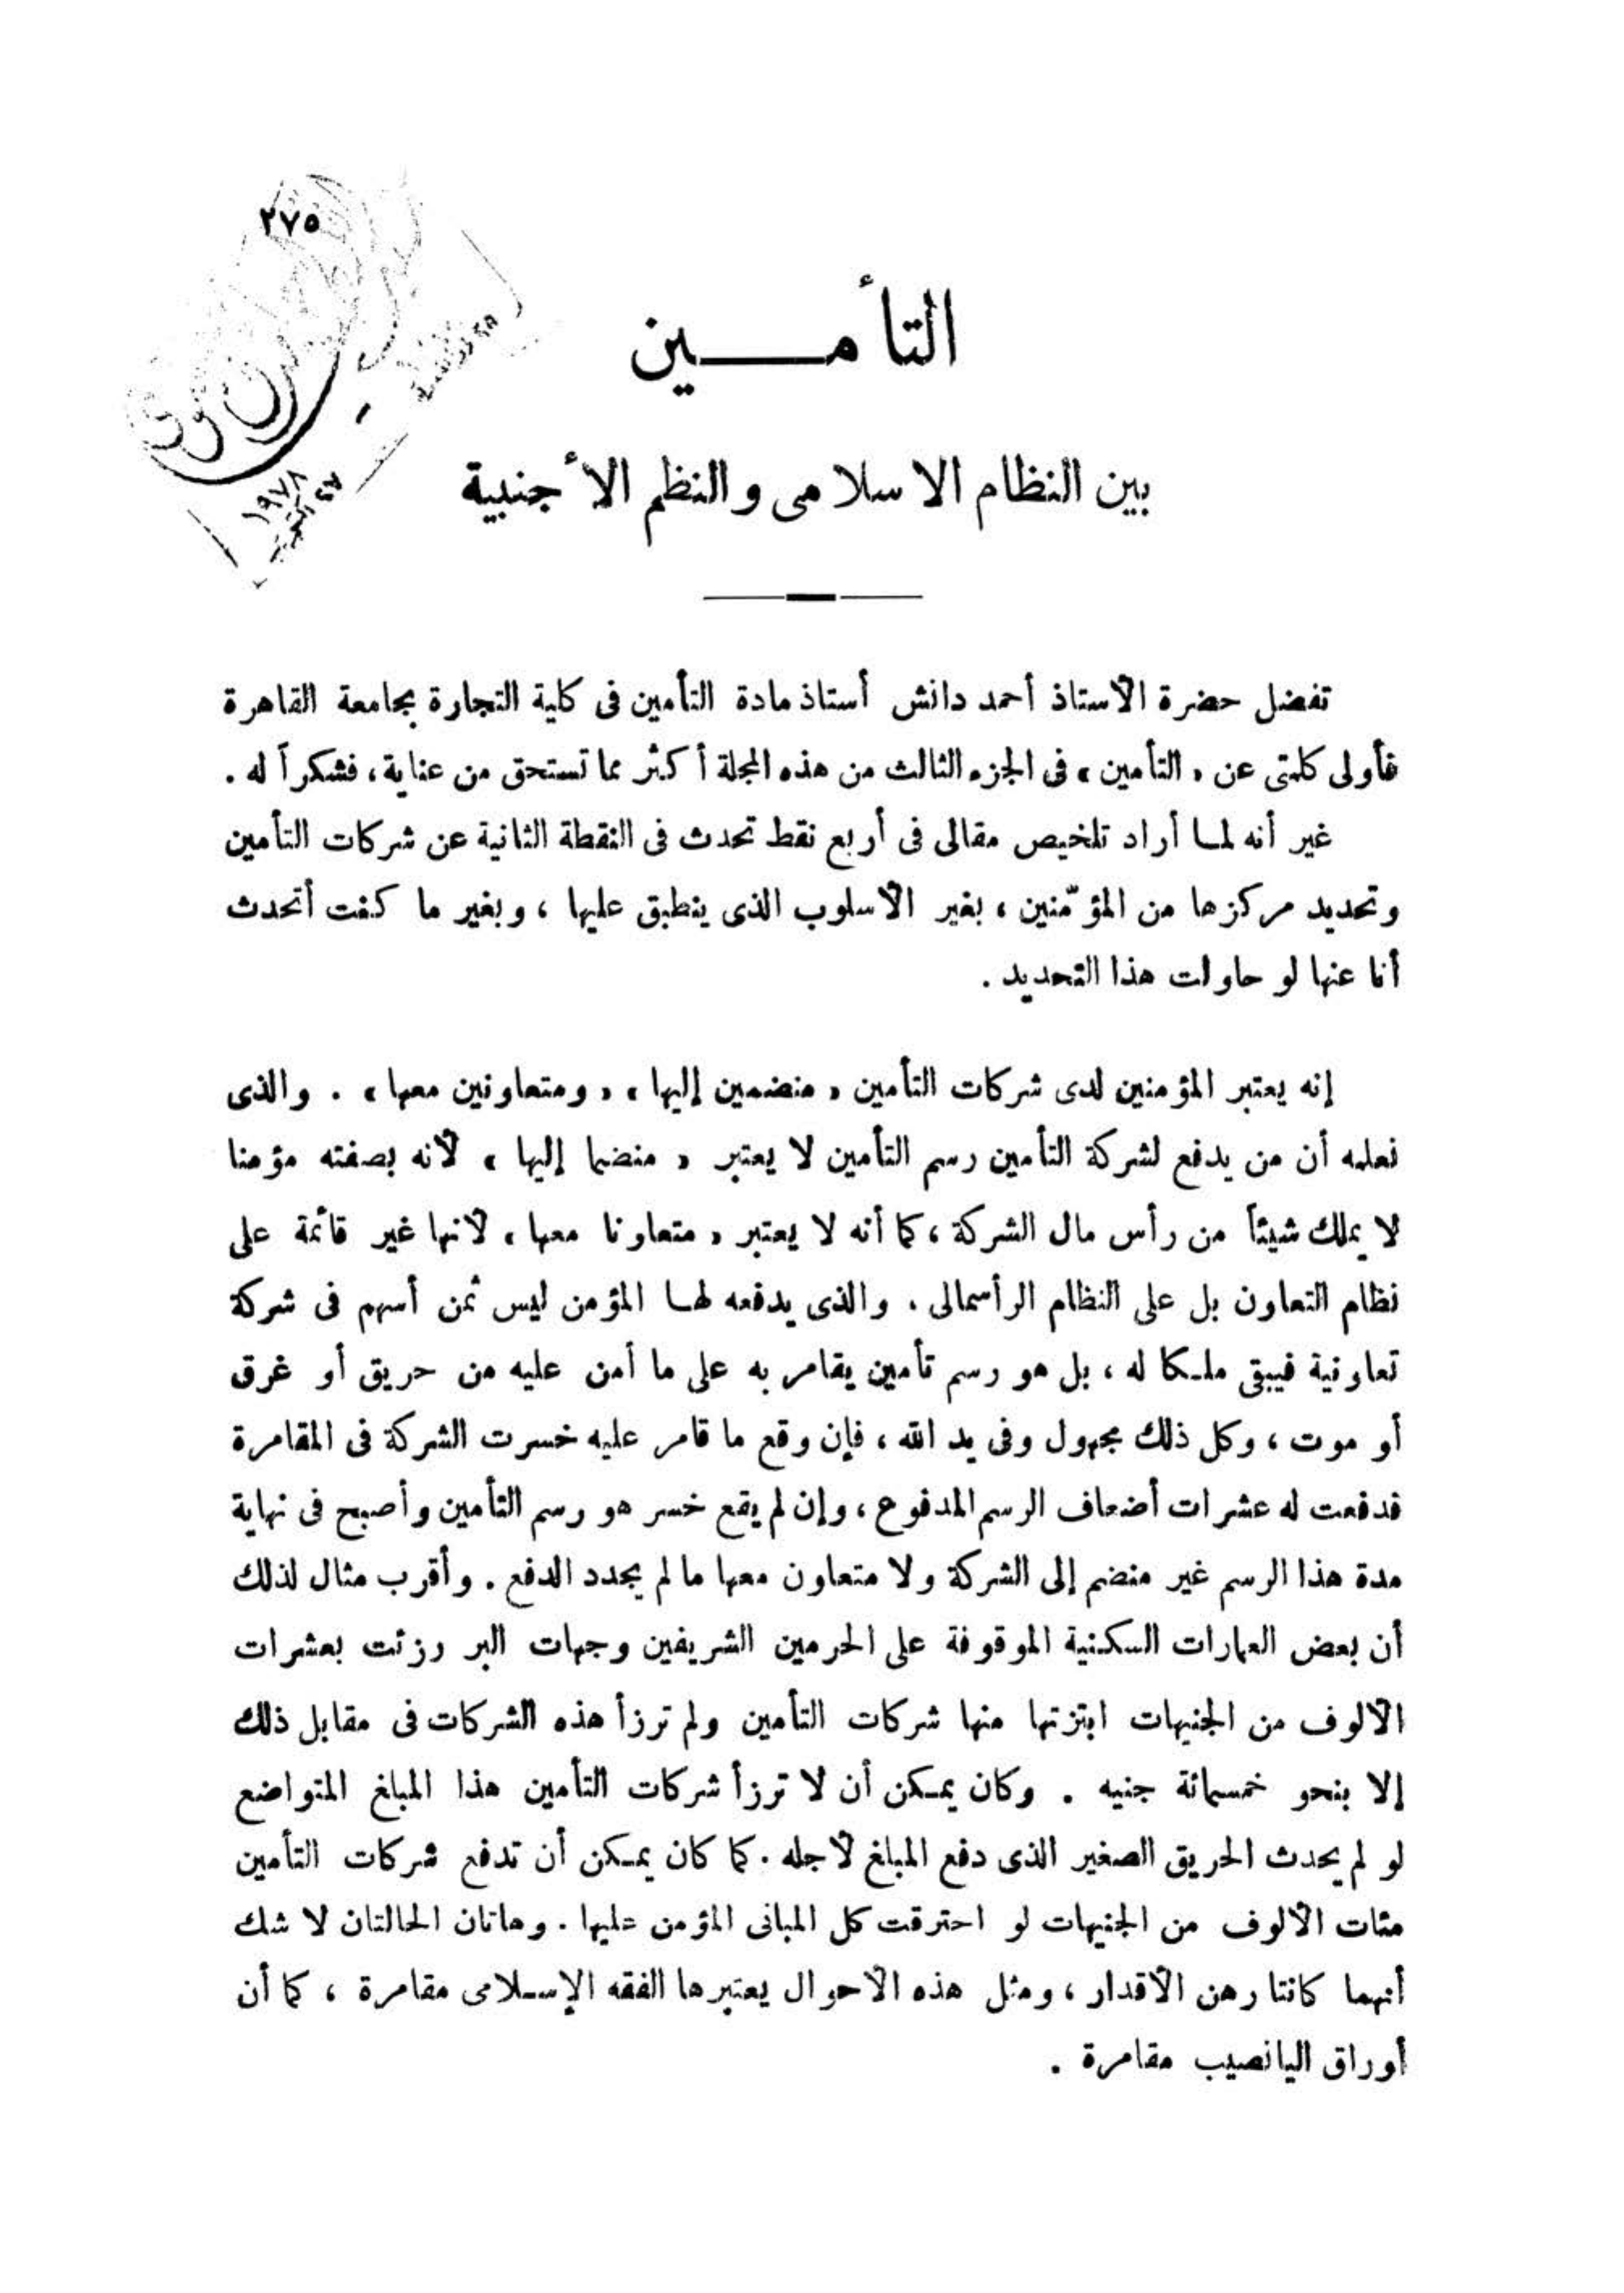 ٢٧٥
التأمـــــين
بين النظام الاسلامى والنظم الأجنبية
تفضل حضرة الأستاذ أحمد دانش أستاذ مادة التأمين فى كلية التجارة بجامعة القاهرة
فأولى كلمتى عن « التأمين » فى الجزء الثالث من هذه المجلة أكثر مما تستحق من عناية ، فشكراً له .
غير أنه لما أراد تلخيص مقالى فى أربع نقط تحدث فى النقطة الثانية عن شركات التأمين
وتحديد مركزها من المؤمّنين ، بغير الأسلوب الذى ينطبق عليها ، وبغير ما كنت أتحدث
أنا عنها لو حاولت هذا التحديد .
إنه يعتبر المؤمنين لدى شركات التأمين « منضمين إليها » « ومتعاونين معها » . والذى
نعلمه أن من يدفع لشركة التأمين رسم التأمين لا يعتبر « منضما إليها » لأنه بصفته مؤمنا
لا يملك شيئاً من رأس مال الشركة ، كما أنه لا يعتبر « متعاونا معها » لأنها غير قائمة على
نظام التعاون بل على النظام الرأسمالى . والذى يدفعه لها المؤمن ليس ثمن أسهم فى شركة
تعاونية فيبقى ملكا له ، بل هو رسم تأمين يقامر به على ما أمن عليه من حريق أو غرق
أو موت ، وكل ذلك مجهول وفى يد الله ، فإن وقع ما قامر عليه خسرت الشركة فى المقامرة
فدفعت له عشرات أضعاف الرسم المدفوع ، وإن لم يقع خسر هو رسم التأمين وأصبح فى نهاية
مدة هذا الرسم غير منضم إلى الشركة ولا متعاون معها ما لم يجدد الدفع . وأقرب مثال لذلك
أن بعض العمارات السكنية الموقوفة على الحرمين الشريفين وجهات البر رزئت بعشرات
الألوف من الجنيهات ابتزتها منها شركات التأمين ولم ترزأ هذه الشركات فى مقابل ذلك
إلا بنحو خمسمائة جنيه . وكان يمكن أن لا ترزأ شركات التأمين هذا المبلغ المتواضع
لو لم يحدث الحريق الصغير الذى دفع المبلغ لأجله . كما كان يمكن أن تدفع شركات التأمين
مئات الألوف من الجنيهات لو احترقت كل المبانى المؤمن عليها . وهاتان الحالتان لا شك
أنهما كانتا رهن الأقدار ، ومثل هذه الأحوال يعتبرها الفقه الإسلامى مقامرة ، كما أن
أوراق اليانصيب مقامرة .